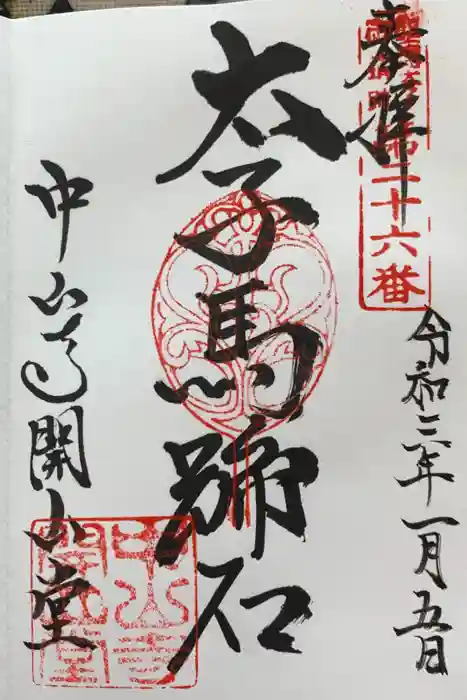 奉拝
二十六番
令和三年一月五日
太子馬蹄石
中山寺開山堂